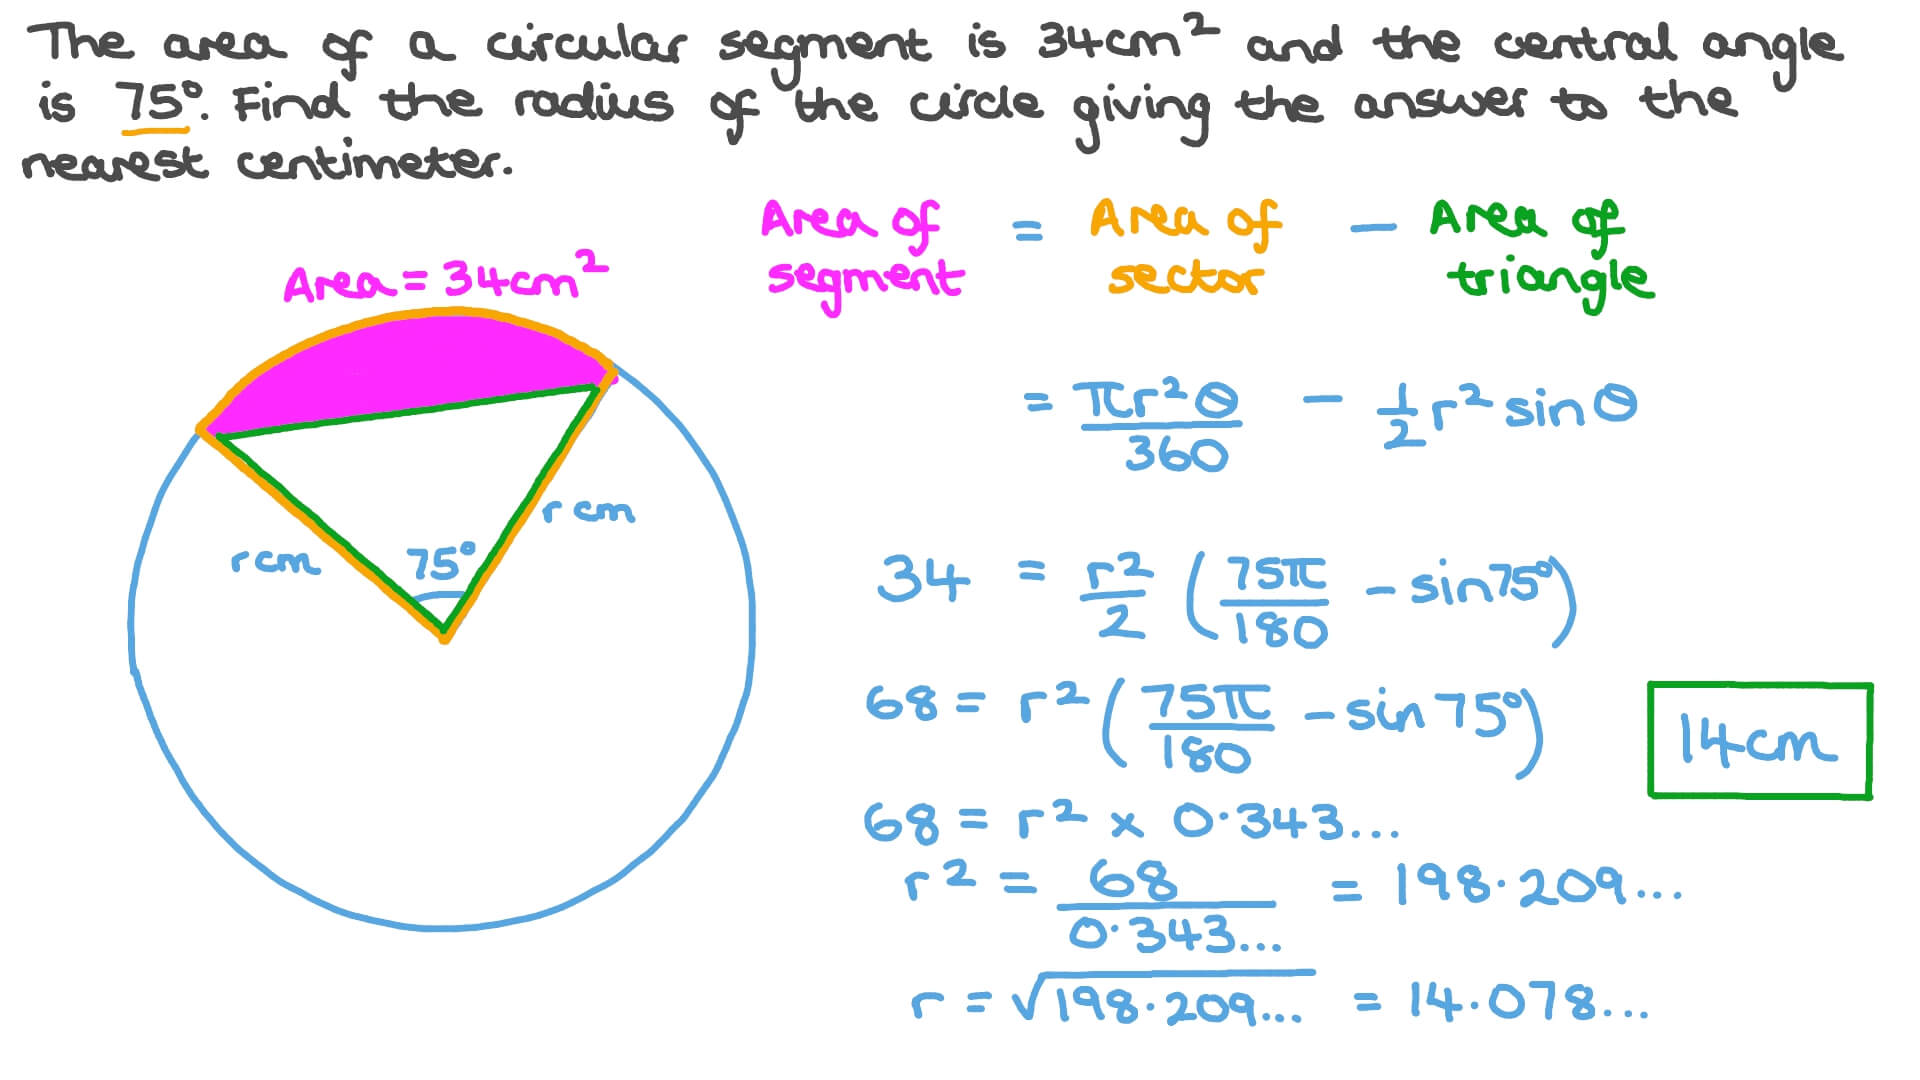 The area of a circular segment is 34cm² and the central angle
is 75°. Find the radius of the circle giving the answer to the
nearest centimeter.
Area of segment = Area of sector − Area of triangle
Area = 34cm²
= πr²θ/360 − 1/2 r² sin θ
r cm
r cm
75°
34 = r²/2 (75π/180 − sin75°)
68 = r² (75π/180 − sin75°)
14cm
68 = r² × 0·343...
r² = 68/0·343... = 198·209...
r = √198·209... = 14·078...